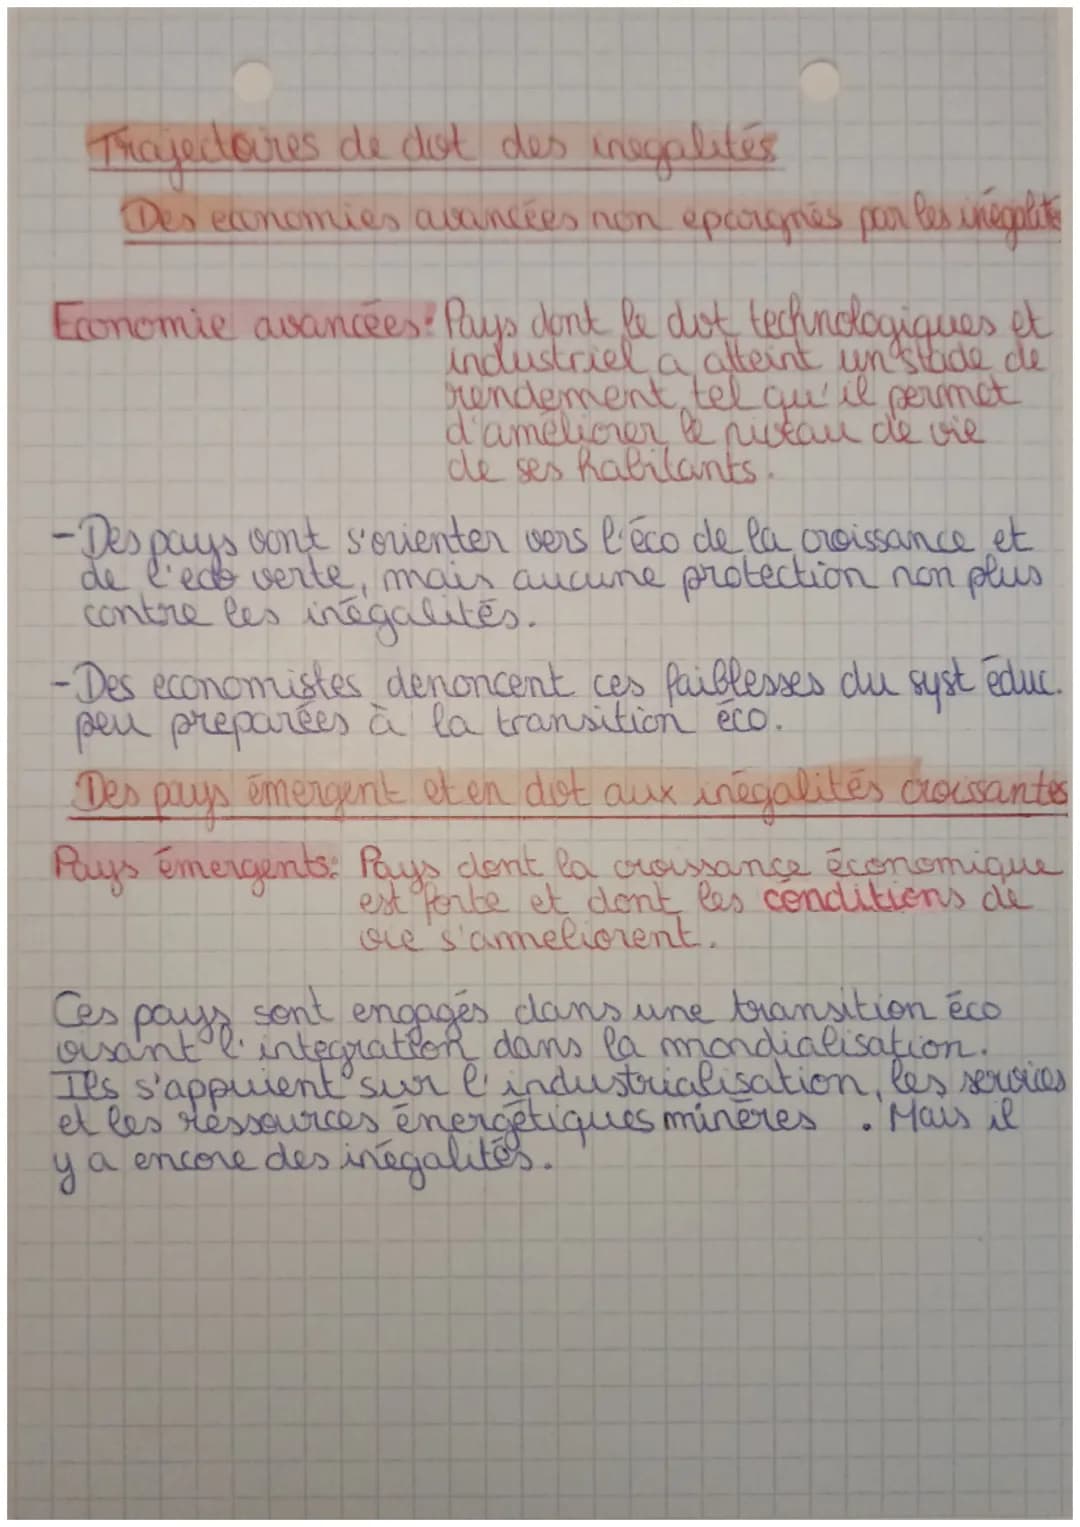 Trajectoires de dvt des inegalités
Des economies avancées non epargnés par les inégalité
Economie avancées: Pays dont le dvt technologiques et
industriel a atteint un stade de
rendement tel qu'il permet
d'améliorer le niveau de vie
de ses habitants.
-Des pays vont s'orienter vers l'éco de la croissance et
de l'eco verte, mais aucune protection non plus
contre les inégalités.
-Des economistes denoncent ces faiblesses du syst éduc.
peu preparées à la transition éco.
Des pays émergent et en dvt aux inégalités croissantes
Pays émergents: Pays dont la croissance économique
est forte et dont les conditions de
vie s'ameliorent.
Ces pays sont engagés dans une transition éco
visant l'intégration dans la mondialisation.
Ils s'appuient sur l'industrialisation, les services
et les ressources énergétiques minères. Mais il
y a encore des inégalités.